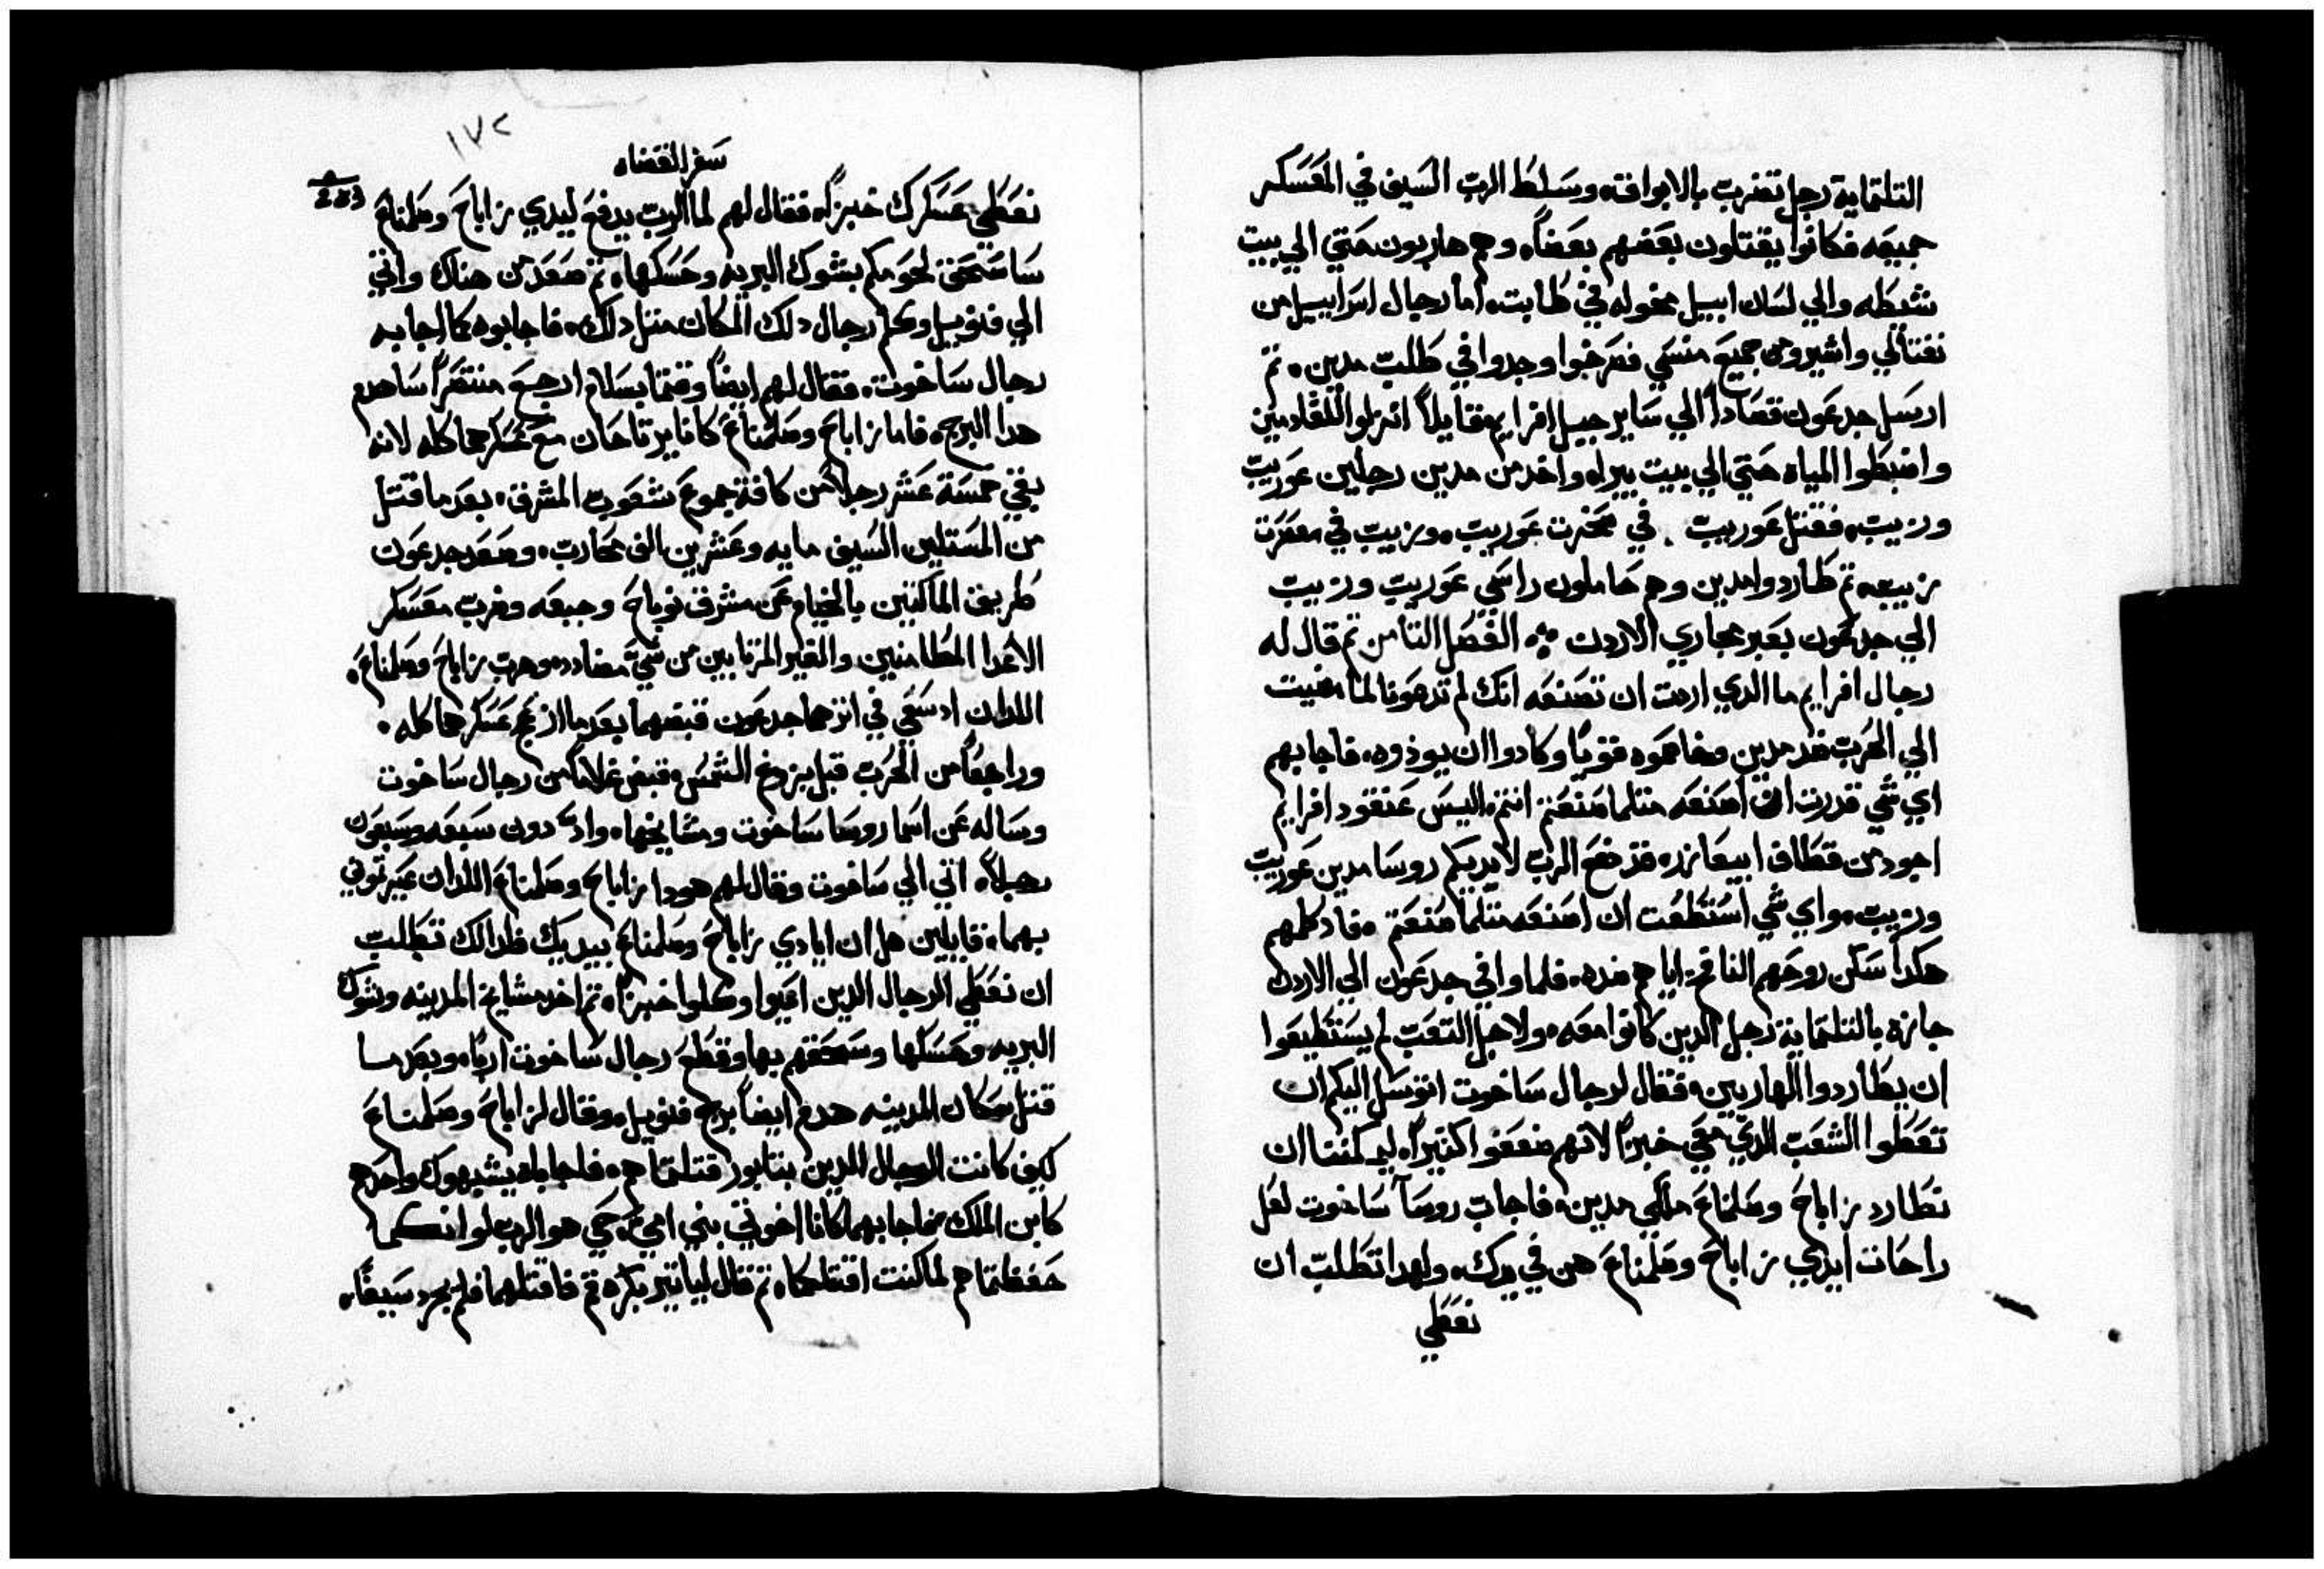 التلتماية رجل تضرب بالابواق، وسلط الرب السيف في المعسكر
جميعه فكانوا يقتلون بعضهم بعضاً، وهم هاربون حتي الي بيت
شيطه والي لسان ابيل محوله في طابت، اما رجال اسراييل من
نفتالي واشير ومن جميع منسي فصرخوا وجدوا في طلب مدين، تم
ارسل جدعون قصاداً الي ساير جبل افرايم قايلاً انزلوا للقا مدين
واضبطوا المياه حتي الي بيت بيرا، واخد من مدين رجلين عوريب
وزيب، فقتل عوريب في صخرت عوريب، وزيب في معصرت
زيب، تم طاردوا مدين وهم حاملون راسي عوريب وزيب
الي جدعون بعبر مجاري الاردن ؞ الفصل التامن تم قال له
رجال افرايم ما الدي اردت ان تصنعه انك لم تدعونا لما مضيت
الي الحرب ضد مدين وخاصموه قوياً وكادوا ان يوذوه، فاجابهم
اي شي قدرت ان اصنعه متلما صنعتم انتم، اليس عنقود افرايم
اجود من قطاف ابيعازر، قد دفع الرب لايديكم روسا مدين عوريب
وزيب، واي شي استطعت ان اصنعه متلما صنعتم، فاد كلمهم
هكدا سكن روحهم الناقم اياهم ضده، فلما وافي جدعون الي الاردن
جازه بالتلتماية رجل الدين كانوا معه، ولاجل التعب لم يستطيعوا
ان يطاردوا الهاربين، فقال لرجال ساخوت اتوسل اليكم ان
تعطوا الشعب الدي معي خبزاً لانهم ضعفوا كتيراً، ليمكننا ان
نطارد زاباح وصلمناع ملكي مدين، فاجاب روسا ساخوت لعل
راحات ايدي زاباح وصلمناع هن في يدك، ولهدا تطلب ان
نعطي
١٧٢
سفر القضاه
نعطي عسكرك خبزاً، فقال لهم لما الرب يدفع ليدي زاباح وصلمناع
ساسحق لحومكم بشوك البريه وحسكها، تم صعد من هناك واتي
الي فنويل وكلم رجال دلك المكان متل دلك، فاجابوه كما اجابه
رجال ساخوت، فقال لهم ايضاً وقتما بسلام ارجع منتصراً ساهدم
هدا البرج، فاما زاباح وصلمناع كانا يرتاحان مع عسكرهما كله لانه
بقي خمسة عشر رجلاً من كافة جموع شعوب المشرق، بعد ما قتل
من المستلين السيف مايه وعشرين الف محارب، وصعد جدعون
طريق الماكتين بالخيام عن مشرق نوباح وجبعه وضرب معسكر
الاعدا المطامنين والغير المرتابين من شي مضادد، وهرب زاباح وصلمناع،
اللدان اد سعي في اترهما جدعون قبضهما بعد ما ازعج عسكرهما كله،
وراجعاً من الحرب قبل بزوغ الشمس، قبض غلاماً من رجال ساخوت
وساله عن اسما روسا ساخوت ومشايخها، واد دون سبعه وسبعون
رجلاً، اتي الي ساخوت وقال لهم هودا زاباح وصلمناع اللدان عيرتوني
بهما، قايلين هل ان ايادي زاباح وصلمناع بيديك فلدالك تطلب
ان نعطي الرجال الدين اعيوا وكلوا خبزاً، تم اخد مشايخ المدينه وشوك
البريه وحسكها وسحقهم بها وقطع رجال ساخوت ارباً، وبعد ما
قتل سكان المدينه هدم ايضاً برج فنويل، وقال لزاباح وصلمناع
كيف كانت الرجال الدين بتابور قتلتماهم، فاجاباه يشبهوك واحدهم
كابن الملك، فاجابهما كانا اخوتي بني امي، حي هو الرب لو انكما
حفظتماهم لما كنت اقتلكما، تم قال لياتير بكره قم فاقتلهما فلم يجرد سيفاً،